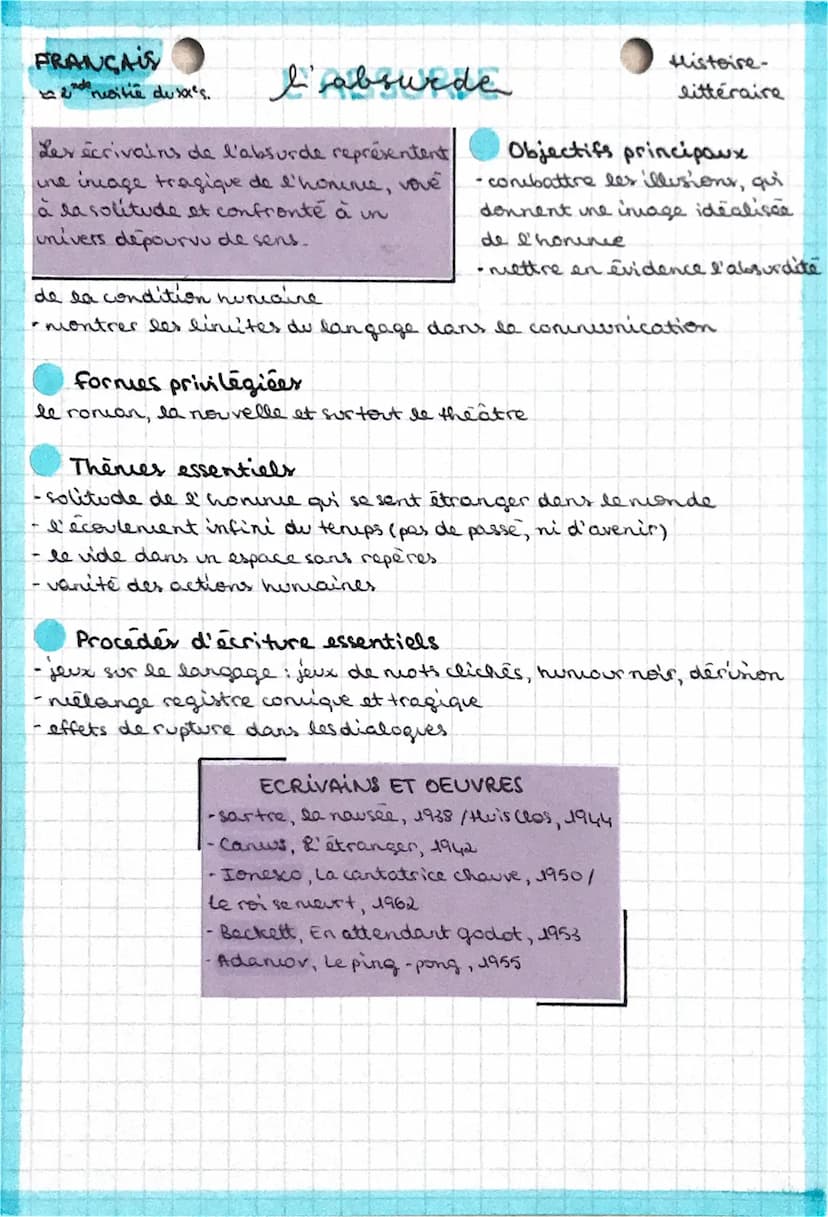 FRANÇAIS
↳ 2nde moitié du XXe s.
L'ABSURDE
l'absurde
Histoire-
littéraire
Les écrivains de l'absurde représentent
une image tragique de l'homme, voué
à la solitude et confronté à un
univers dépourvu de sens.
Objectifs principaux
- combattre les illusions, qui
donnent une image idéalisée
de l'homme
• mettre en évidence l'absurdité
de la condition humaine
• montrer les limites du langage dans la communication
Formes privilégiées
le roman, la nouvelle et surtout le théâtre
Thèmes essentiels
- solitude de l'homme qui se sent étranger dans le monde
- l'écoulement infini du temps (pas de passé, ni d'avenir)
- le vide dans un espace sans repères
- vanité des actions humaines
Procédés d'écriture essentiels
- jeux sur le langage : jeux de mots clichés, humour noir, dérision
- mélange registre comique et tragique
- effets de rupture dans les dialogues
ECRIVAINS ET OEUVRES
- Sartre, la nausée, 1938 / Huis Clos, 1944
- Camus, L'étranger, 1942
- Ionesco, La cantatrice chauve, 1950 /
Le roi se meurt, 1962
- Beckett, En attendant godot, 1953
- Adamov, Le ping-pong, 1955